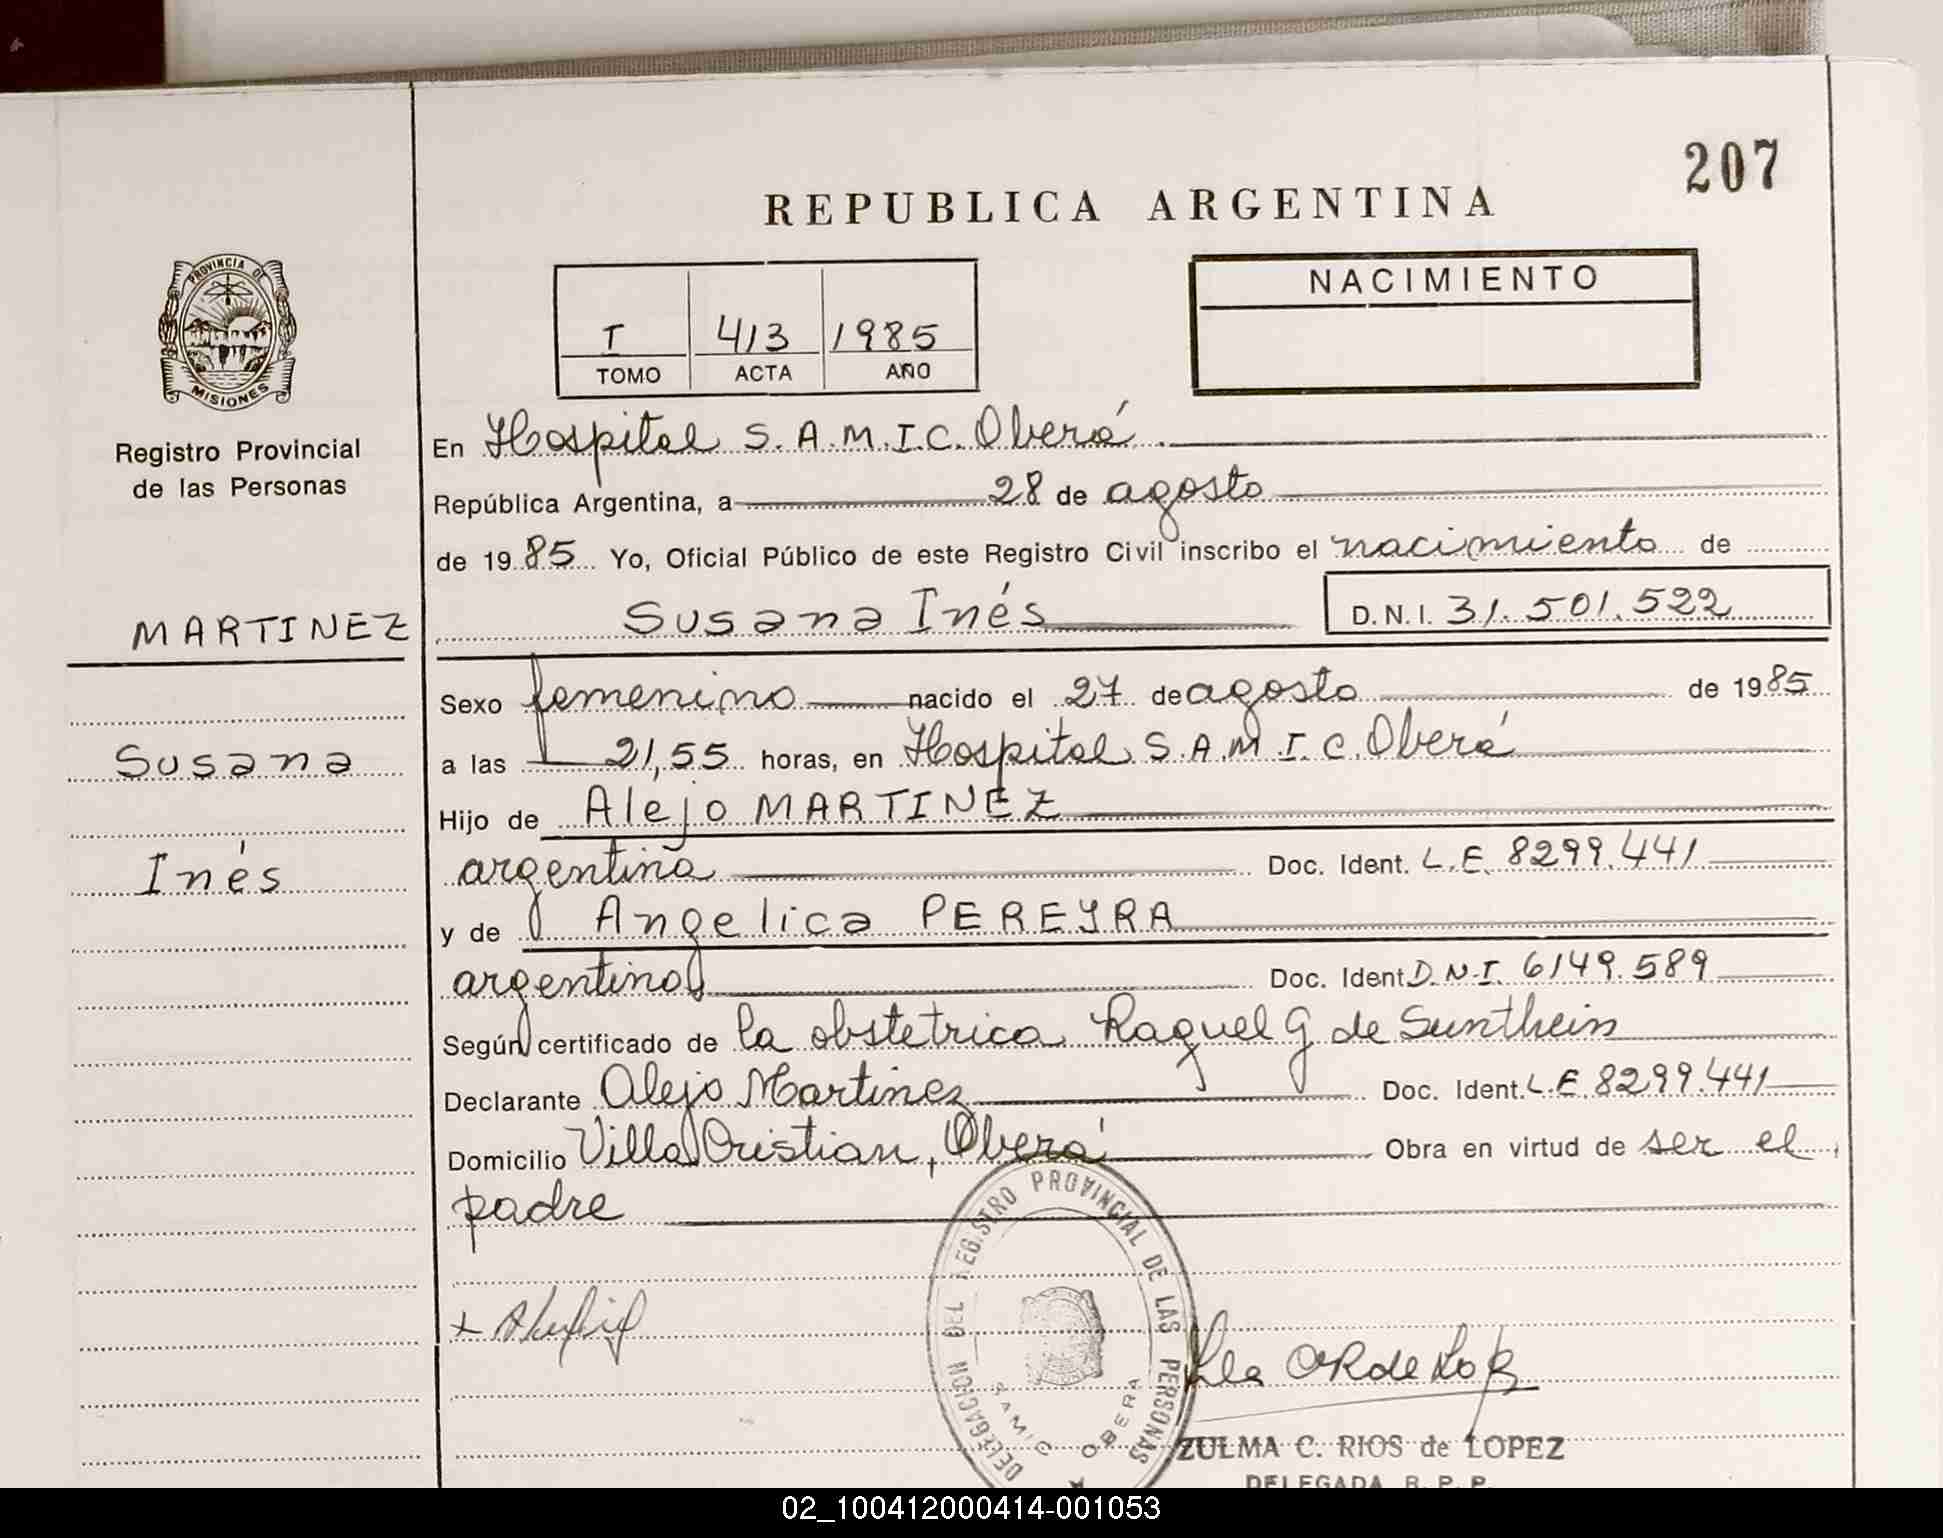 207
REPUBLICA ARGENTINA
PROVINCIA DE
MISIONES
Registro Provincial
de las Personas
I 413 1985
TOMO ACTA AÑO
NACIMIENTO
En Hospital S.A.M.I.C. Oberá
República Argentina, a 28 de agosto
de 1985 Yo, Oficial Público de este Registro Civil inscribo el nacimiento de
MARTINEZ
Susana Inés D.N.I. 31.501.522
Sexo femenino nacido el 27 de agosto de 1985
Susana
a las 21,55 horas, en Hospital S.A.M.I.C. Oberá
Hijo de Alejo MARTINEZ
Inés
argentina Doc. Ident. L.E. 8299.441
y de Angelica PEREYRA
argentina Doc. Ident. D.N.I. 6149.589
Según certificado de la obstetrica Raquel G de Sunthein
Declarante Alejo Martinez Doc. Ident. L.E. 8299.441
Domicilio Villa Cristian, Oberá Obra en virtud de ser el
padre
DELEGACION DEL REGISTRO PROVINCIAL DE LAS PERSONAS
SAMIC OBERA
ZULMA C. RIOS de LOPEZ
DELEGADA R. P. P.
02_100412000414-001053